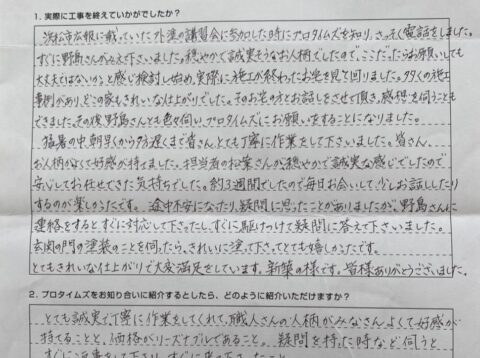 1. 実際に工事を終えていかがでしたか？
浜松市広報に載っていた外塗の講習会に参加した時にプロタイムズを知り、さっそく電話をしました。
すぐに野島さんがみえて下さいました。穏やかで誠実そうなお人柄でしたので、ここだったらお願いしても
大丈夫ではないかと感じ検討し始め、実際に施工が終わったお宅を見て回りました。多くの施工
事例があり、どこの家もきれいな仕上がりでした。そのお宅の方とお話しをさせて頂き、感想を伺うことも
できました。その後野島さんと色々伺い、プロタイムズにお願いをすることになりました。
猛暑の中朝早くから夕方遅くまで皆さんとても丁寧に作業をして下さいました。皆さん、
お人柄がよくて好感が持てました。担当者の松葉さんが穏やかで誠実な感じでしたので
安心してお任せできた気持ちでした。約3週間でしたので毎日お会いして、少しお話ししたり
するのが楽しかったです。途中不安になったり、疑問に思ったことがありましたが、野島さんに
連絡をすると、すぐに対応して下さったし、すぐに駆けつけて疑問に答えて下さいました。
玄関の門の塗装のことを伺ったら、きれいに塗って下さってとても嬉しかったです。
とてもきれいな仕上がりで大変満足をしています。新築の様です。皆様ありがとうございました。
2. プロタイムズをお知り合いに紹介するとしたら、どのように紹介いただけますか？
とても誠実で、丁寧に作業をしてくれて、職人さんの人柄がみなさんよくて好感が
持てることと、価格がリーズナブルであること。疑問を持った時など伺うと
すぐに